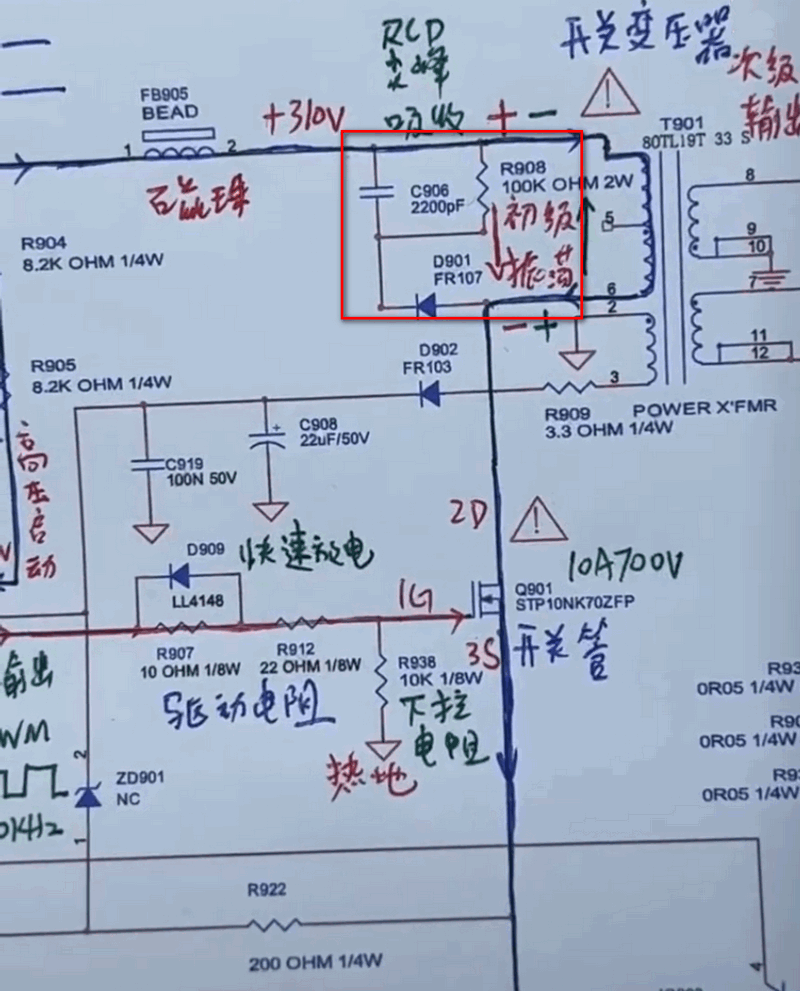 RCD
尖峰
吸收
开关变压器
次级
输出
FB905
BEAD
+310V
+ -
1
2
磁珠
T901
80TL19T 33 S
R904
8.2K OHM 1/4W
C906
2200pF
R908
100K OHM 2W
初级
振荡
D901
FR107
5
6
2
3
- +
8
9
10
7
11
12
R905
8.2K OHM 1/4W
D902
FR103
R909
3.3 OHM 1/4W
POWER X'FMR
C908
22uF/50V
+
C919
100N 50V
高压启动
2D
10A700V
D909
快速放电
LL4148
1G
Q901
STP10NK70ZFP
R907
10 OHM 1/8W
R912
22 OHM 1/8W
R938
10K 1/8W
3S
开关管
驱动电阻
下拉
电阻
热地
输出
WM
ZD901
NC
2
1
R93
0R05 1/4W
R90
0R05 1/4W
R93
0R05 1/4W
R922
200 OHM 1/4W
4